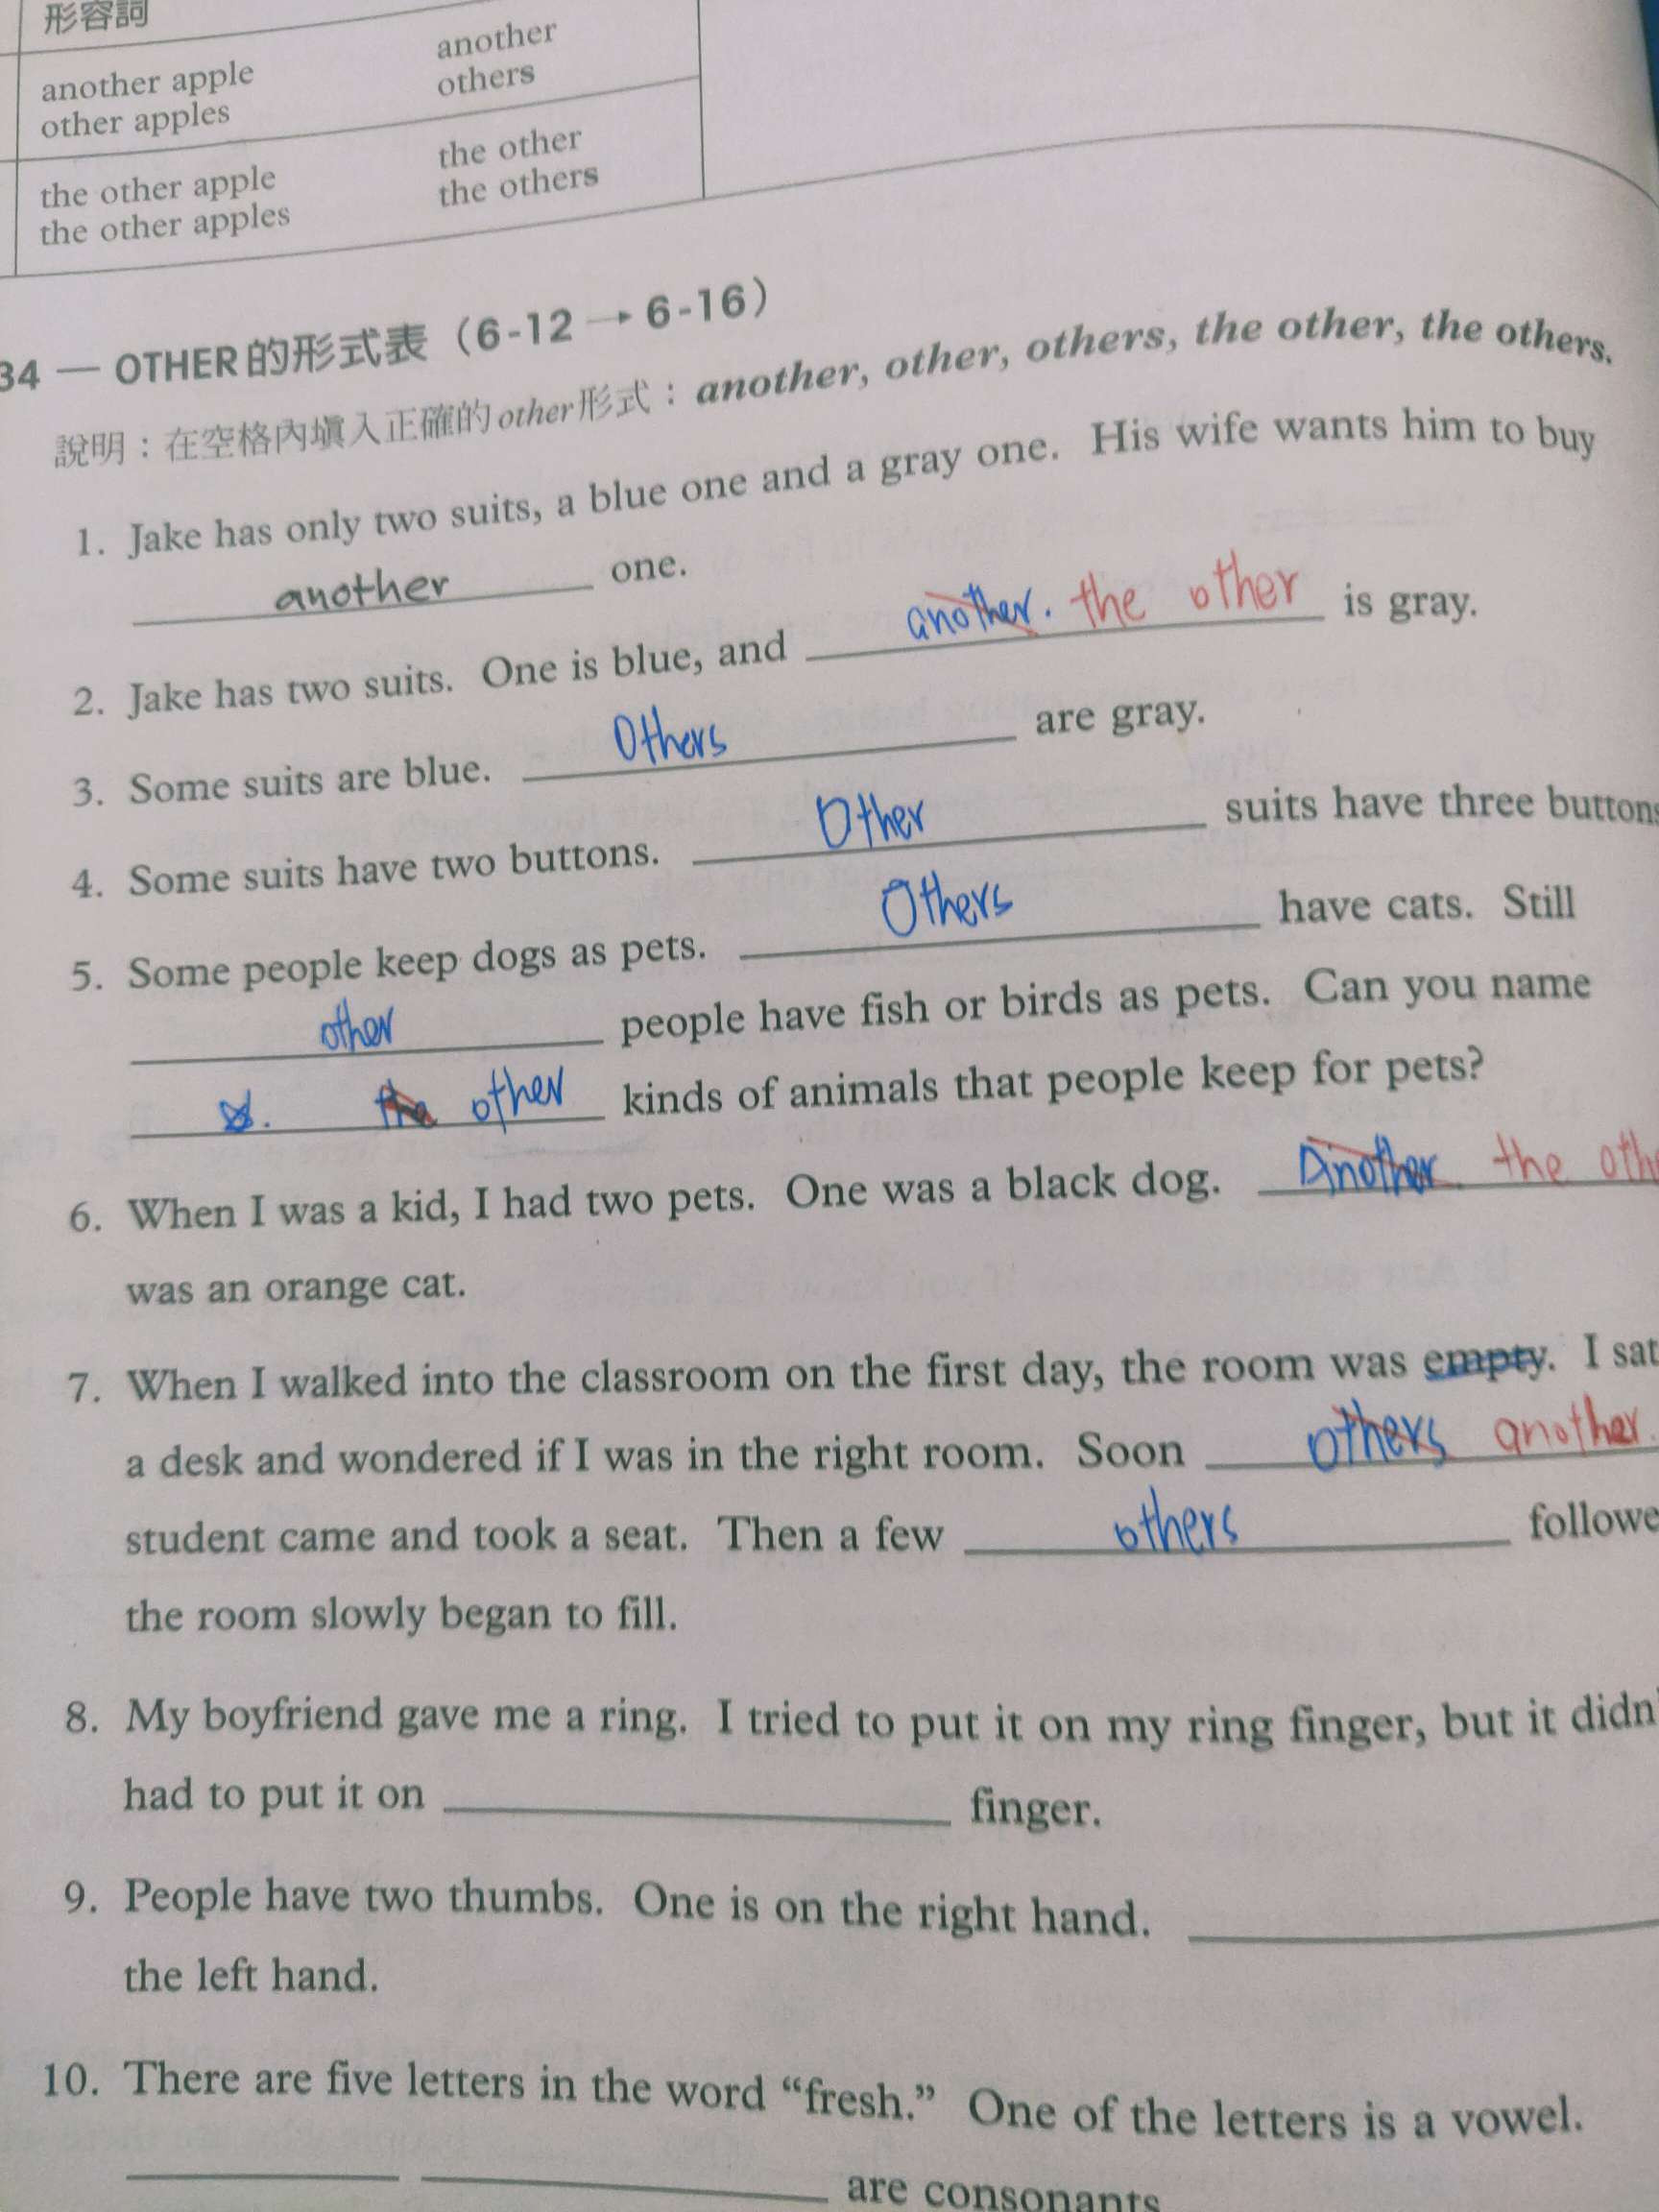 形容詞
another apple another
other apples others
the other apple the other
the other apples the others
34 — OTHER的形式表（6-12 → 6-16）
說明：在空格內填入正確的other形式：another, other, others, the other, the others.
1. Jake has only two suits, a blue one and a gray one. His wife wants him to buy
another one.
2. Jake has two suits. One is blue, and another. the other is gray.
3. Some suits are blue. Others are gray.
4. Some suits have two buttons. Other suits have three buttons
5. Some people keep dogs as pets. Others have cats. Still
other people have fish or birds as pets. Can you name
the other kinds of animals that people keep for pets?
6. When I was a kid, I had two pets. One was a black dog. Another the oth
was an orange cat.
7. When I walked into the classroom on the first day, the room was empty. I sat
a desk and wondered if I was in the right room. Soon others another
student came and took a seat. Then a few others followe
the room slowly began to fill.
8. My boyfriend gave me a ring. I tried to put it on my ring finger, but it didn'
had to put it on finger.
9. People have two thumbs. One is on the right hand.
the left hand.
10. There are five letters in the word “fresh.” One of the letters is a vowel.
are consonants